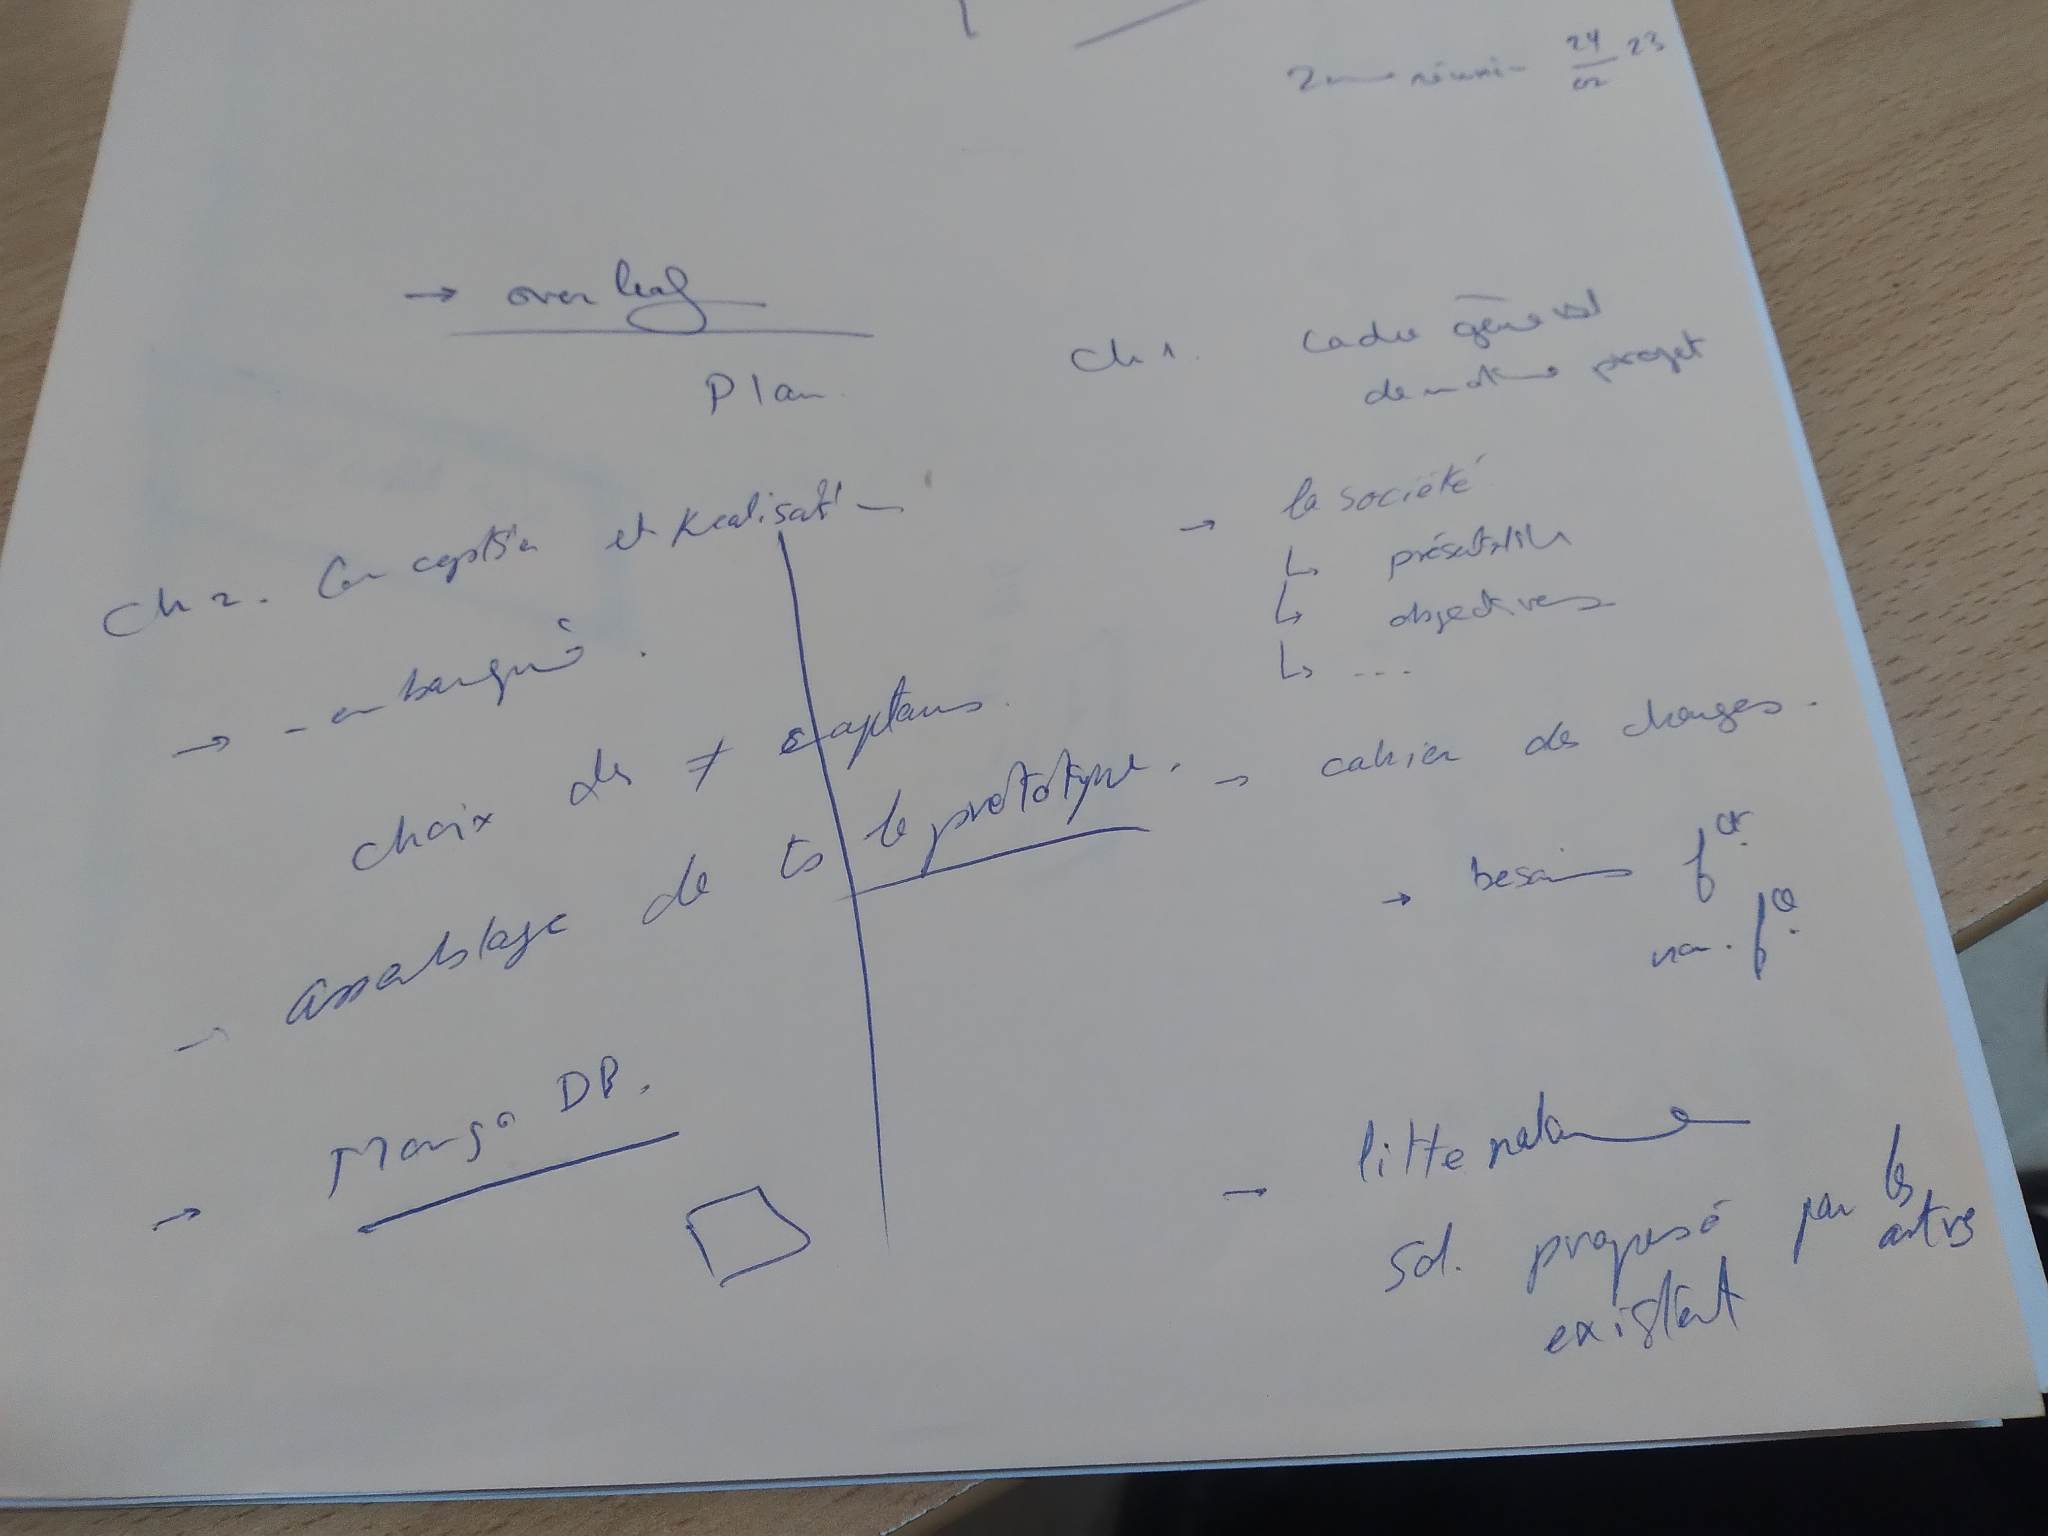 2eme réunion 24/02 23
→ overleaf
Plan
Ch 1. Cadre général
de notre projet
→ la société
↳ présentation
↳ objectives
↳ ...
→ cahier des charges.
→ besoins f
non. f
→ litterature
Sol. proposé par les
autres
existant
Ch 2. Conception et Réalisation
→ - embarqué.
choix des ≠ capteurs.
→ assemblage de ts le prototype.
→ Mongo DB.